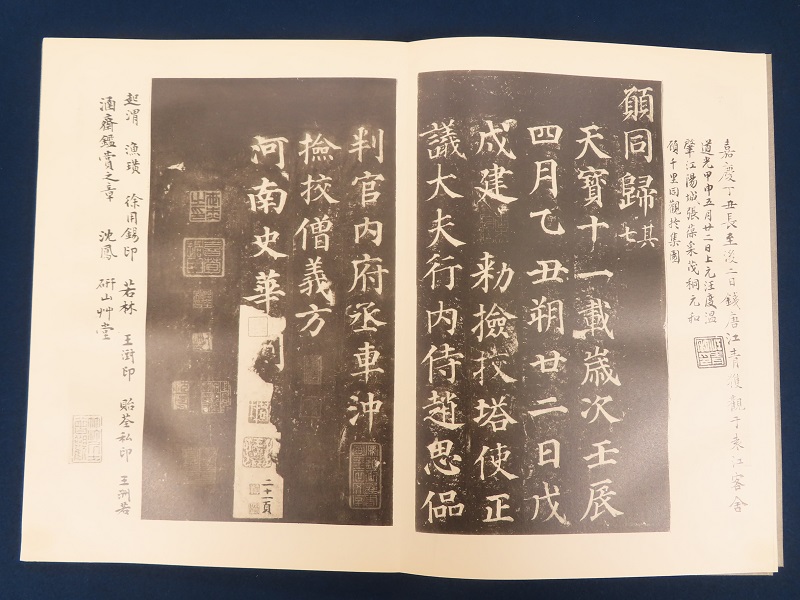 嘉慶丁丑長至後二日錢唐江青獲觀于朱江客舍
道光甲申五月廿二日上元汪度溫
肇江陽城張葆采茂桐元和
顧千里同觀於集園
願同歸其七
天寶十一載歲次壬辰
四月乙丑朔廿二日戊
戌建 勑撿挍塔使正
議大夫行內侍趙思偘
判官內府丞車沖
撿挍僧義方
河南史華刻
二十一頁
起渭 漁璜 徐用錫印 若林 王澍印 貽荃私印 王澍若
涵齋鑑賞之章 沈鳳 研山艸堂